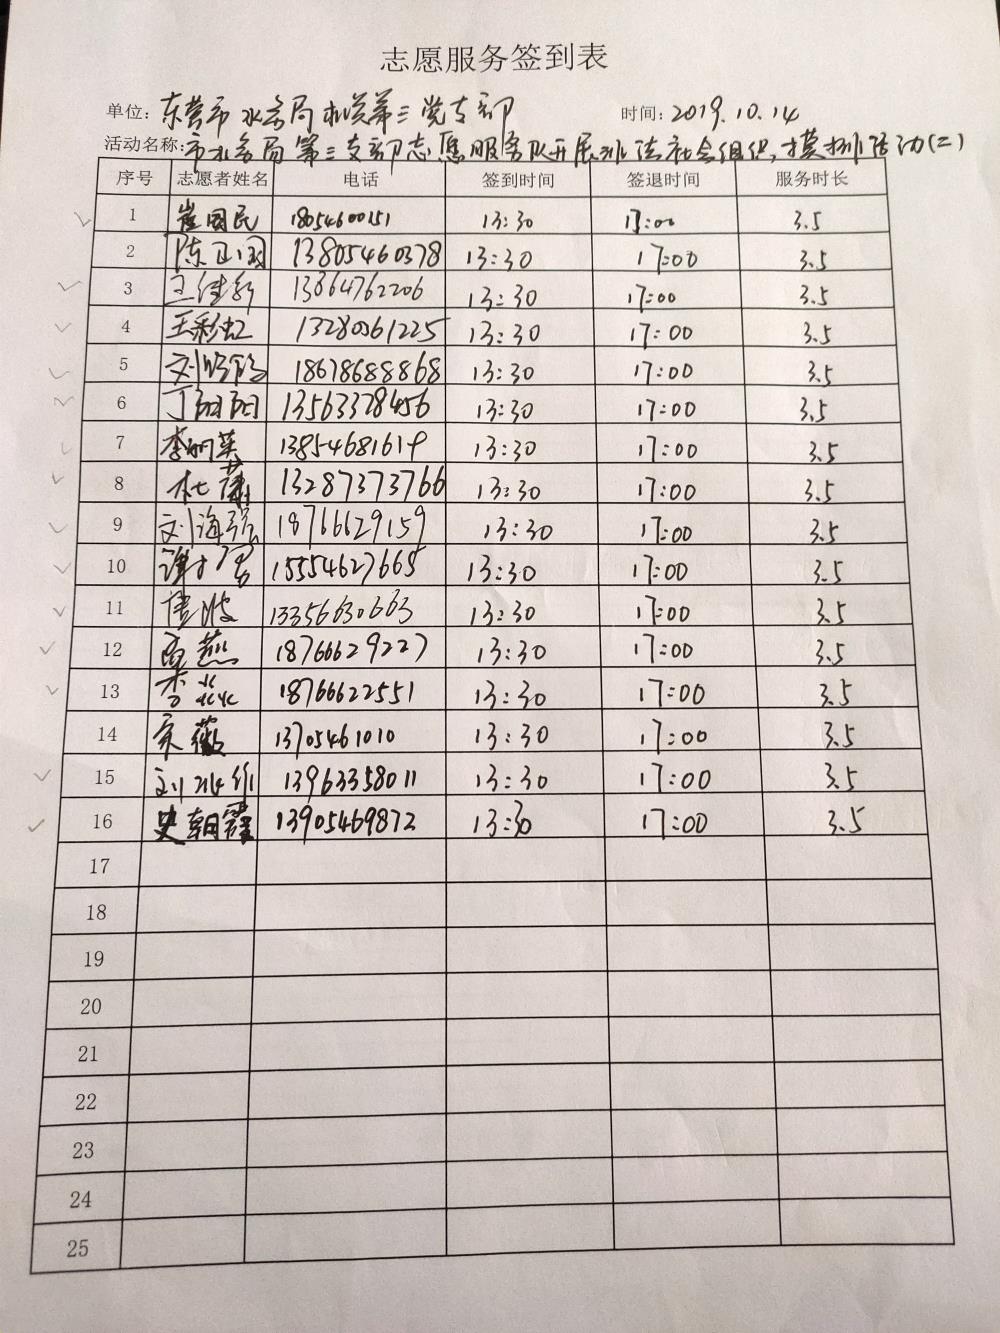 志愿服务签到表
单位：东营市水务局机关第三党支部 时间：2019.10.14
活动名称：市水务局第三支部志愿服务队开展非法社会组织摸排活动(二)
序号 志愿者姓名 电话 签到时间 签退时间 服务时长
1 崔国民 18054600151 13:30 17:00 3.5
2 13805460378 13:30 17:00 3.5
3 王继新 13864762206 13:30 17:00 3.5
4 王彩虹 13280361225 13:30 17:00 3.5
5 18678688868 13:30 17:00 3.5
6 丁阳阳 13563378456 13:30 17:00 3.5
7 李丽英 13854681619 13:30 17:00 3.5
8 杜 13287373766 13:30 17:00 3.5
9 刘海强 18766629159 13:30 17:00 3.5
10 15554627665 13:30 17:00 3.5
11 13356630663 13:30 17:00 3.5
12 燕 18766629227 13:30 17:00 3.5
13 李 18766622551 13:30 17:00 3.5
14 宋薇 13705461010 13:30 17:00 3.5
15 刘 13963358011 13:30 17:00 3.5
16 史朝霞 13905469872 13:30 17:00 3.5
17
18
19
20
21
22
23
24
25